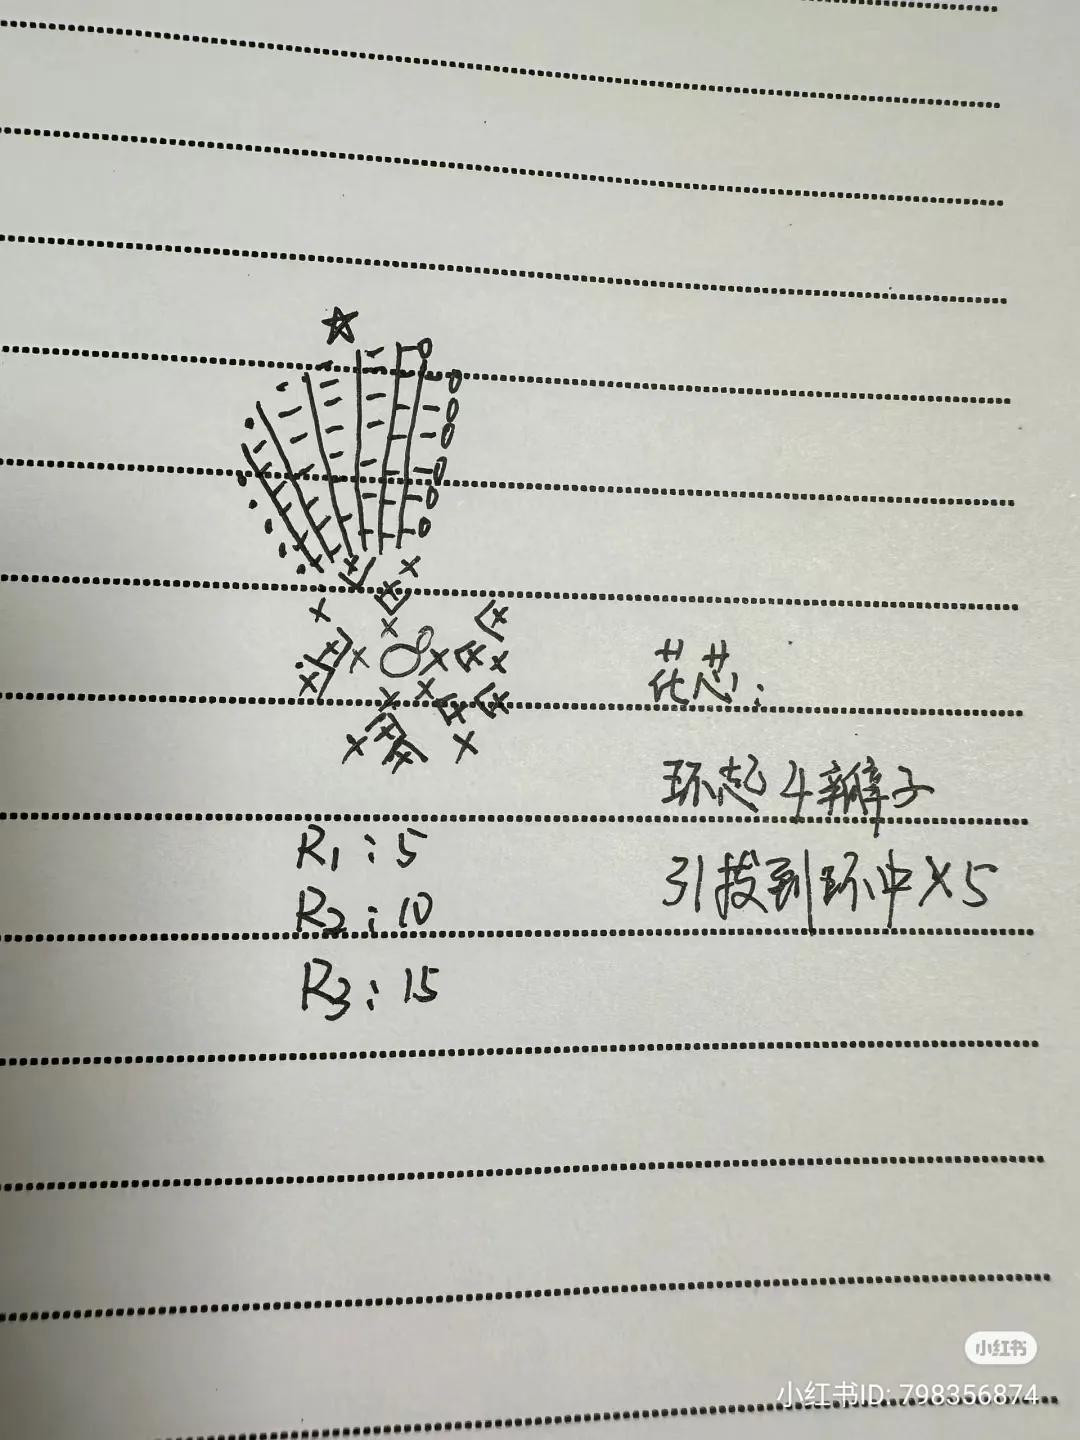 花芯:
环起4辫子
引拔到环中×5
R1:5
R2:10
R3:15
小红书
小红书ID: 798356874